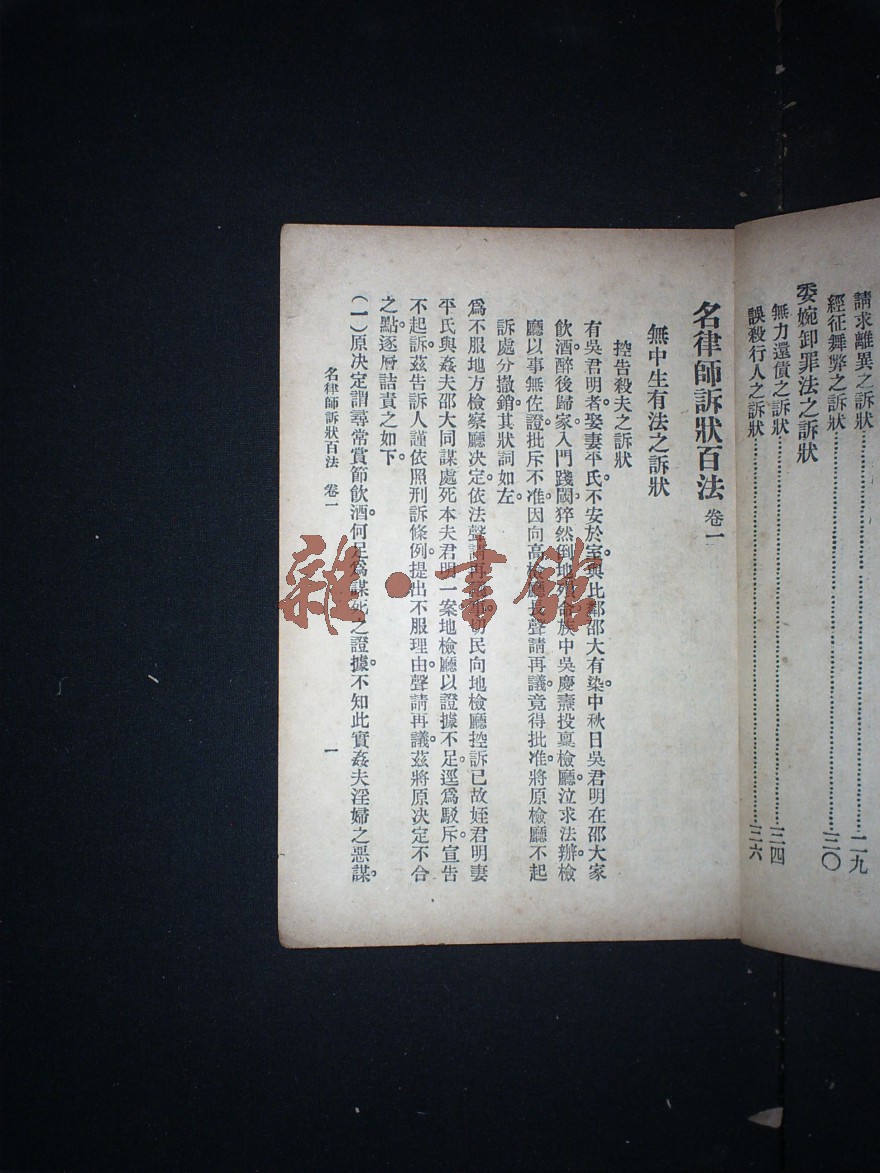 請求離異之訴狀……二九
經征舞弊之訴狀……三〇
委婉卸罪法之訴狀
無力還債之訴狀……三四
誤殺行人之訴狀……三六
名律師訴狀百法 卷一
無中生有法之訴狀
控告殺夫之訴狀
有吳君明者。娶妻平氏。不安於室。與比鄰邵大有染。中秋日吳君明在邵大家
飲酒。醉後歸家。入門踐閾。猝然倒地。族中吳慶燾投稟檢廳。泣求法辦。檢
廳以事無佐證。批斥不准。因向高檢廳長聲請再議。竟得批准。將原檢廳不起
訴處分撤銷。其狀詞如左。
爲不服地方檢察廳决定。依法聲請再切民向地檢廳控訴已故姪君明妻
平氏與姦夫邵大同謀處死本夫君明一案。地檢廳以證據不足。逕爲駁斥。宣告
不起訴。茲告訴人謹依照刑訴條例。提出不服理由。聲請再議。茲將原决定不合
之點。逐層詰責之如下。
(一)原决定謂尋常賞節飲酒。何足爲謀死之證據。不知此實姦夫淫婦之惡謀。
名律師訴狀百法 卷一 一
雜·書館